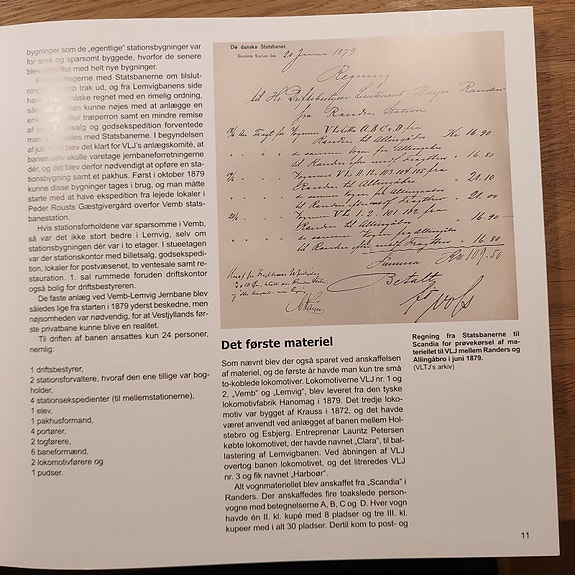 bygninger som de „egentlige" stationsbygninger var
for små og sparsomt byggede, hvorfor de senere
blev udskiftet med helt nye bygninger.
med Statsbanerne om tilslut-
trak ud, og fra Lemvigbanens side
regnet med en rimelig ordning,
kunne man nøjes med at anlægge en
træperron samt en mindre remise
lokstald og godsekspedition forventede
med Statsbanerne. I begyndelsen
af blev det klart for VLJ's anlægskomité, at
banen selv skulle varetage jernbaneforretningerne
dér, og det blev derfor nødvendigt at opføre en sta-
tionsbygning samt et pakhus. Først i oktober 1879
kunne disse bygninger tages i brug, og man måtte
starte med at have ekspedition fra lejede lokaler i
Peder Rousts Gæstgivergård overfor Vemb stats-
banestation.
Hvis stationsforholdene var sparsomme i Vemb,
så var det ikke stort bedre i Lemvig, selv om
stationsbygningen dér var i to etager. I stueetagen
var der stationskontor med billetsalg, godsekspedi-
tion, lokaler for postvæsenet, to ventesale samt re-
stauration. 1. sal rummede foruden driftskontor
også bolig for driftsbestyreren.
De faste anlæg ved Vemb-Lemvig Jernbane blev
således lige fra starten i 1879 yderst beskedne, men
nøjsomheden var nødvendig, for at Vestjyllands før-
ste privatbane kunne blive en realitet.
Til driften af banen ansattes kun 24 personer,
nemlig:
1 driftsbestyrer,
2 stationsforvaltere, hvoraf den ene tillige var bog-
holder,
4 stationsekspedienter (til mellemstationerne),
1 elev,
1 pakhusformand,
4 portører,
2 togførere,
6 baneformænd,
2 lokomotivførere og
1 pudser.
De danske Statsbaner,
Randers Station den 20 Juni 1879
Regning
til Hr Driftsbestyrer Lieutenant Randers
fra Randers Station
A. B. C. & D. fra
Randers til Allingåbro Kr 16 90
16 80
Vognene V.L. 11. 12. 103. 104. 105 fra
Randers til Allingåbro 21.10
21.00
Vognene V.L. 1. 2. 101. 102. fra
Randers til Allingåbro 16 90
16.80
Summa Kr 109.50
Betalt
Det første materiel
Som nævnt blev der også sparet ved anskaffelsen
af materiel, og de første år havde man kun tre små
to-koblede lokomotiver. Lokomotiverne VLJ nr. 1 og
2, „Vemb" og „Lemvig", blev leveret fra den tyske
lokomotivfabrik Hanomag i 1879. Det tredje loko-
motiv var bygget af Krauss i 1872, og det havde
været anvendt ved anlægget af banen mellem Hol-
stebro og Esbjerg. Entreprenør Launtz Petersen
købte lokomotivet, der havde navnet „Clara", til bal-
lastering af Lemvigbanen. Ved åbningen af VLJ
overtog banen lokomotivet, og det litreredes VLJ
nr. 3 og fik navnet „Harboør".
Alt vognmateriellet blev anskaffet fra „Scandia" i
Randers. Der anskaffedes fire toakslede person-
vogne med betegnelserne A, B, C og D. Hver vogn
havde én II. kl. kupé med 8 pladser og tre III. kl.
kupeer med i alt 30 pladser. Dertil kom to post- og
Regning fra Statsbanerne til
Scandia for prøvekørsel af ma-
teriellet til VLJ mellem Randers og
Allingåbro i juni 1879.
(VLTJ's arkiv)
11